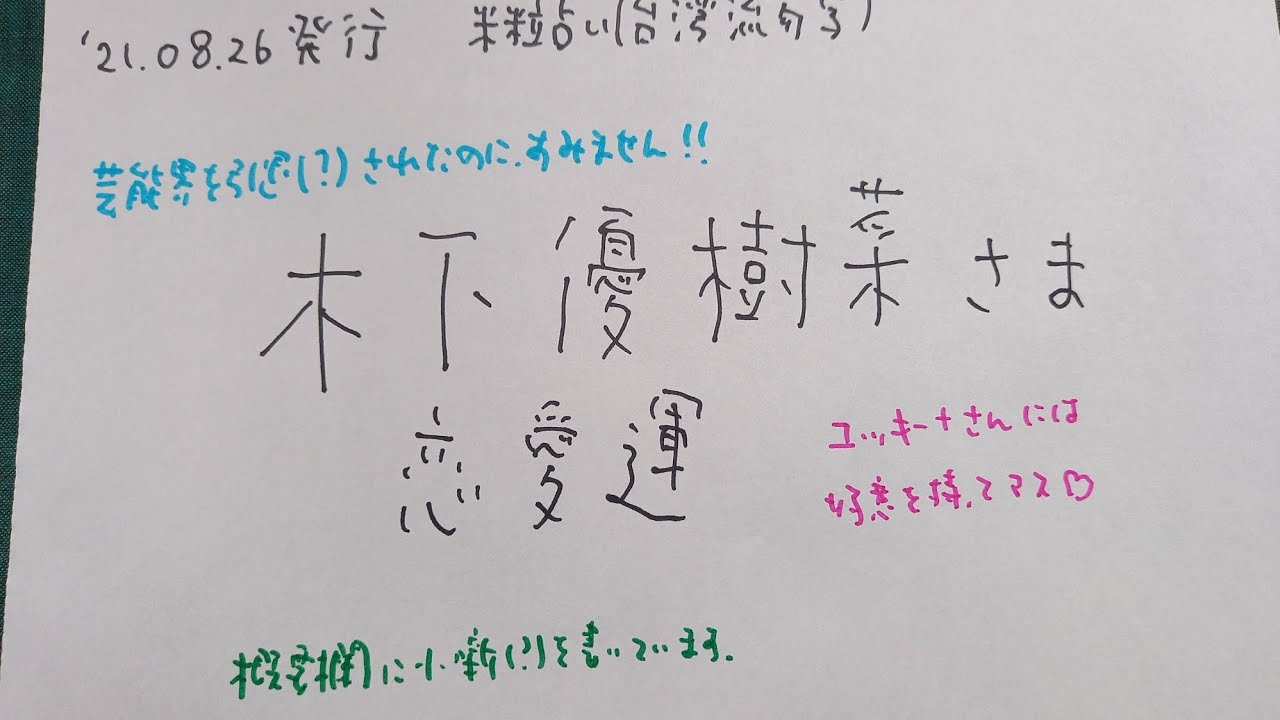 '21.08.26 発行 米粒占い(台湾流わ号)
芸能界を引退(?)されたのに、すみません!!
木下優樹菜さま
恋愛運
ユッキーナさんには
好意を持ってマス♡
に小噺(?)を書いています。